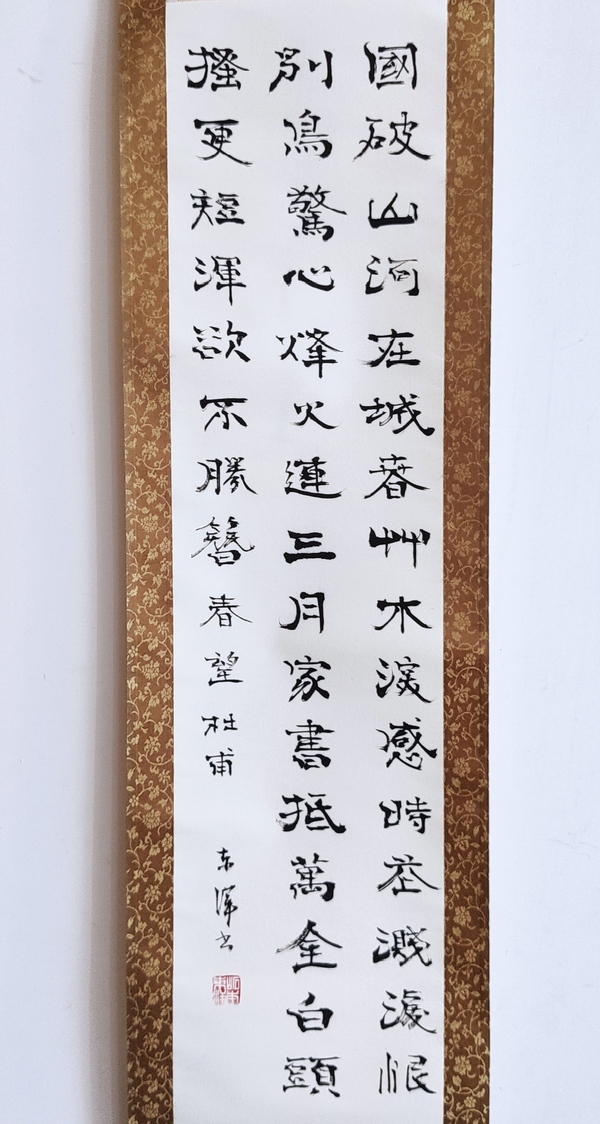 國破山河在城春艸木深感時花濺淚恨
別鳥驚心烽火連三月家書抵萬金白頭
搔更短渾欲不勝簪春望杜甫
东书